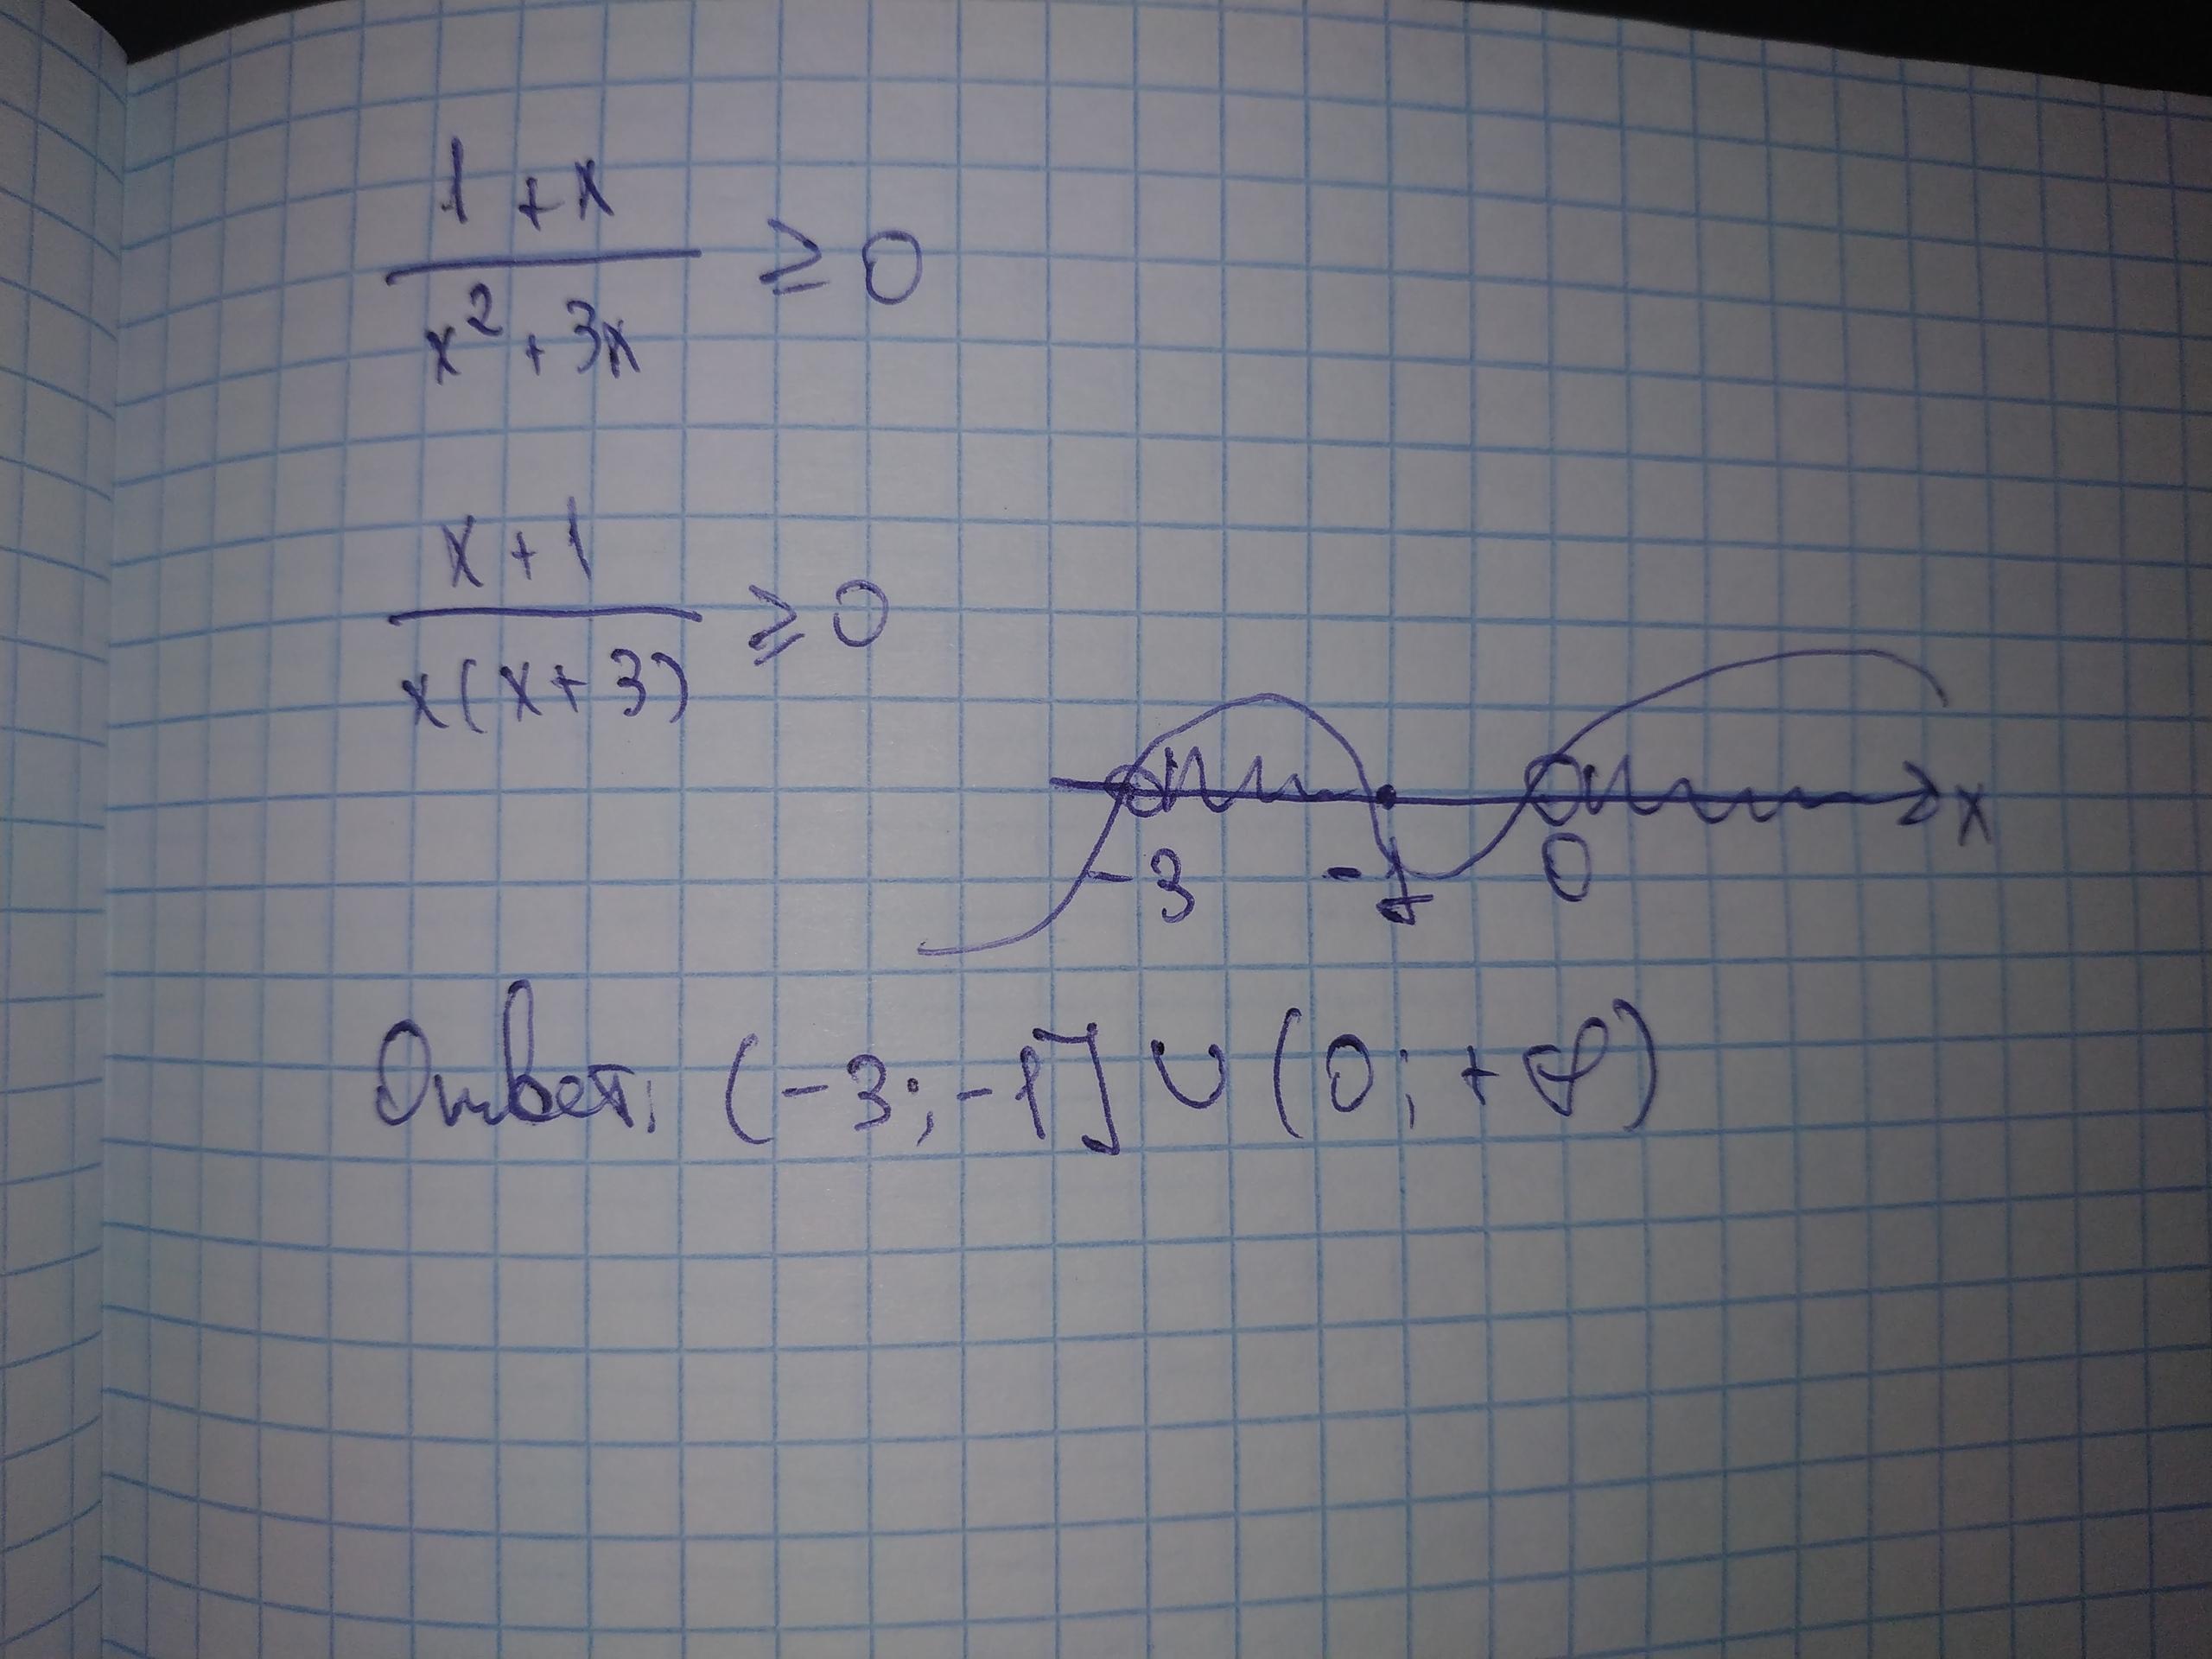 1 + x
x² + 3x
≥ 0
x + 1
x(x + 3)
≥ 0
-3 -1 0 x
Ответ: (-3; -1] ∪ (0; +∞)